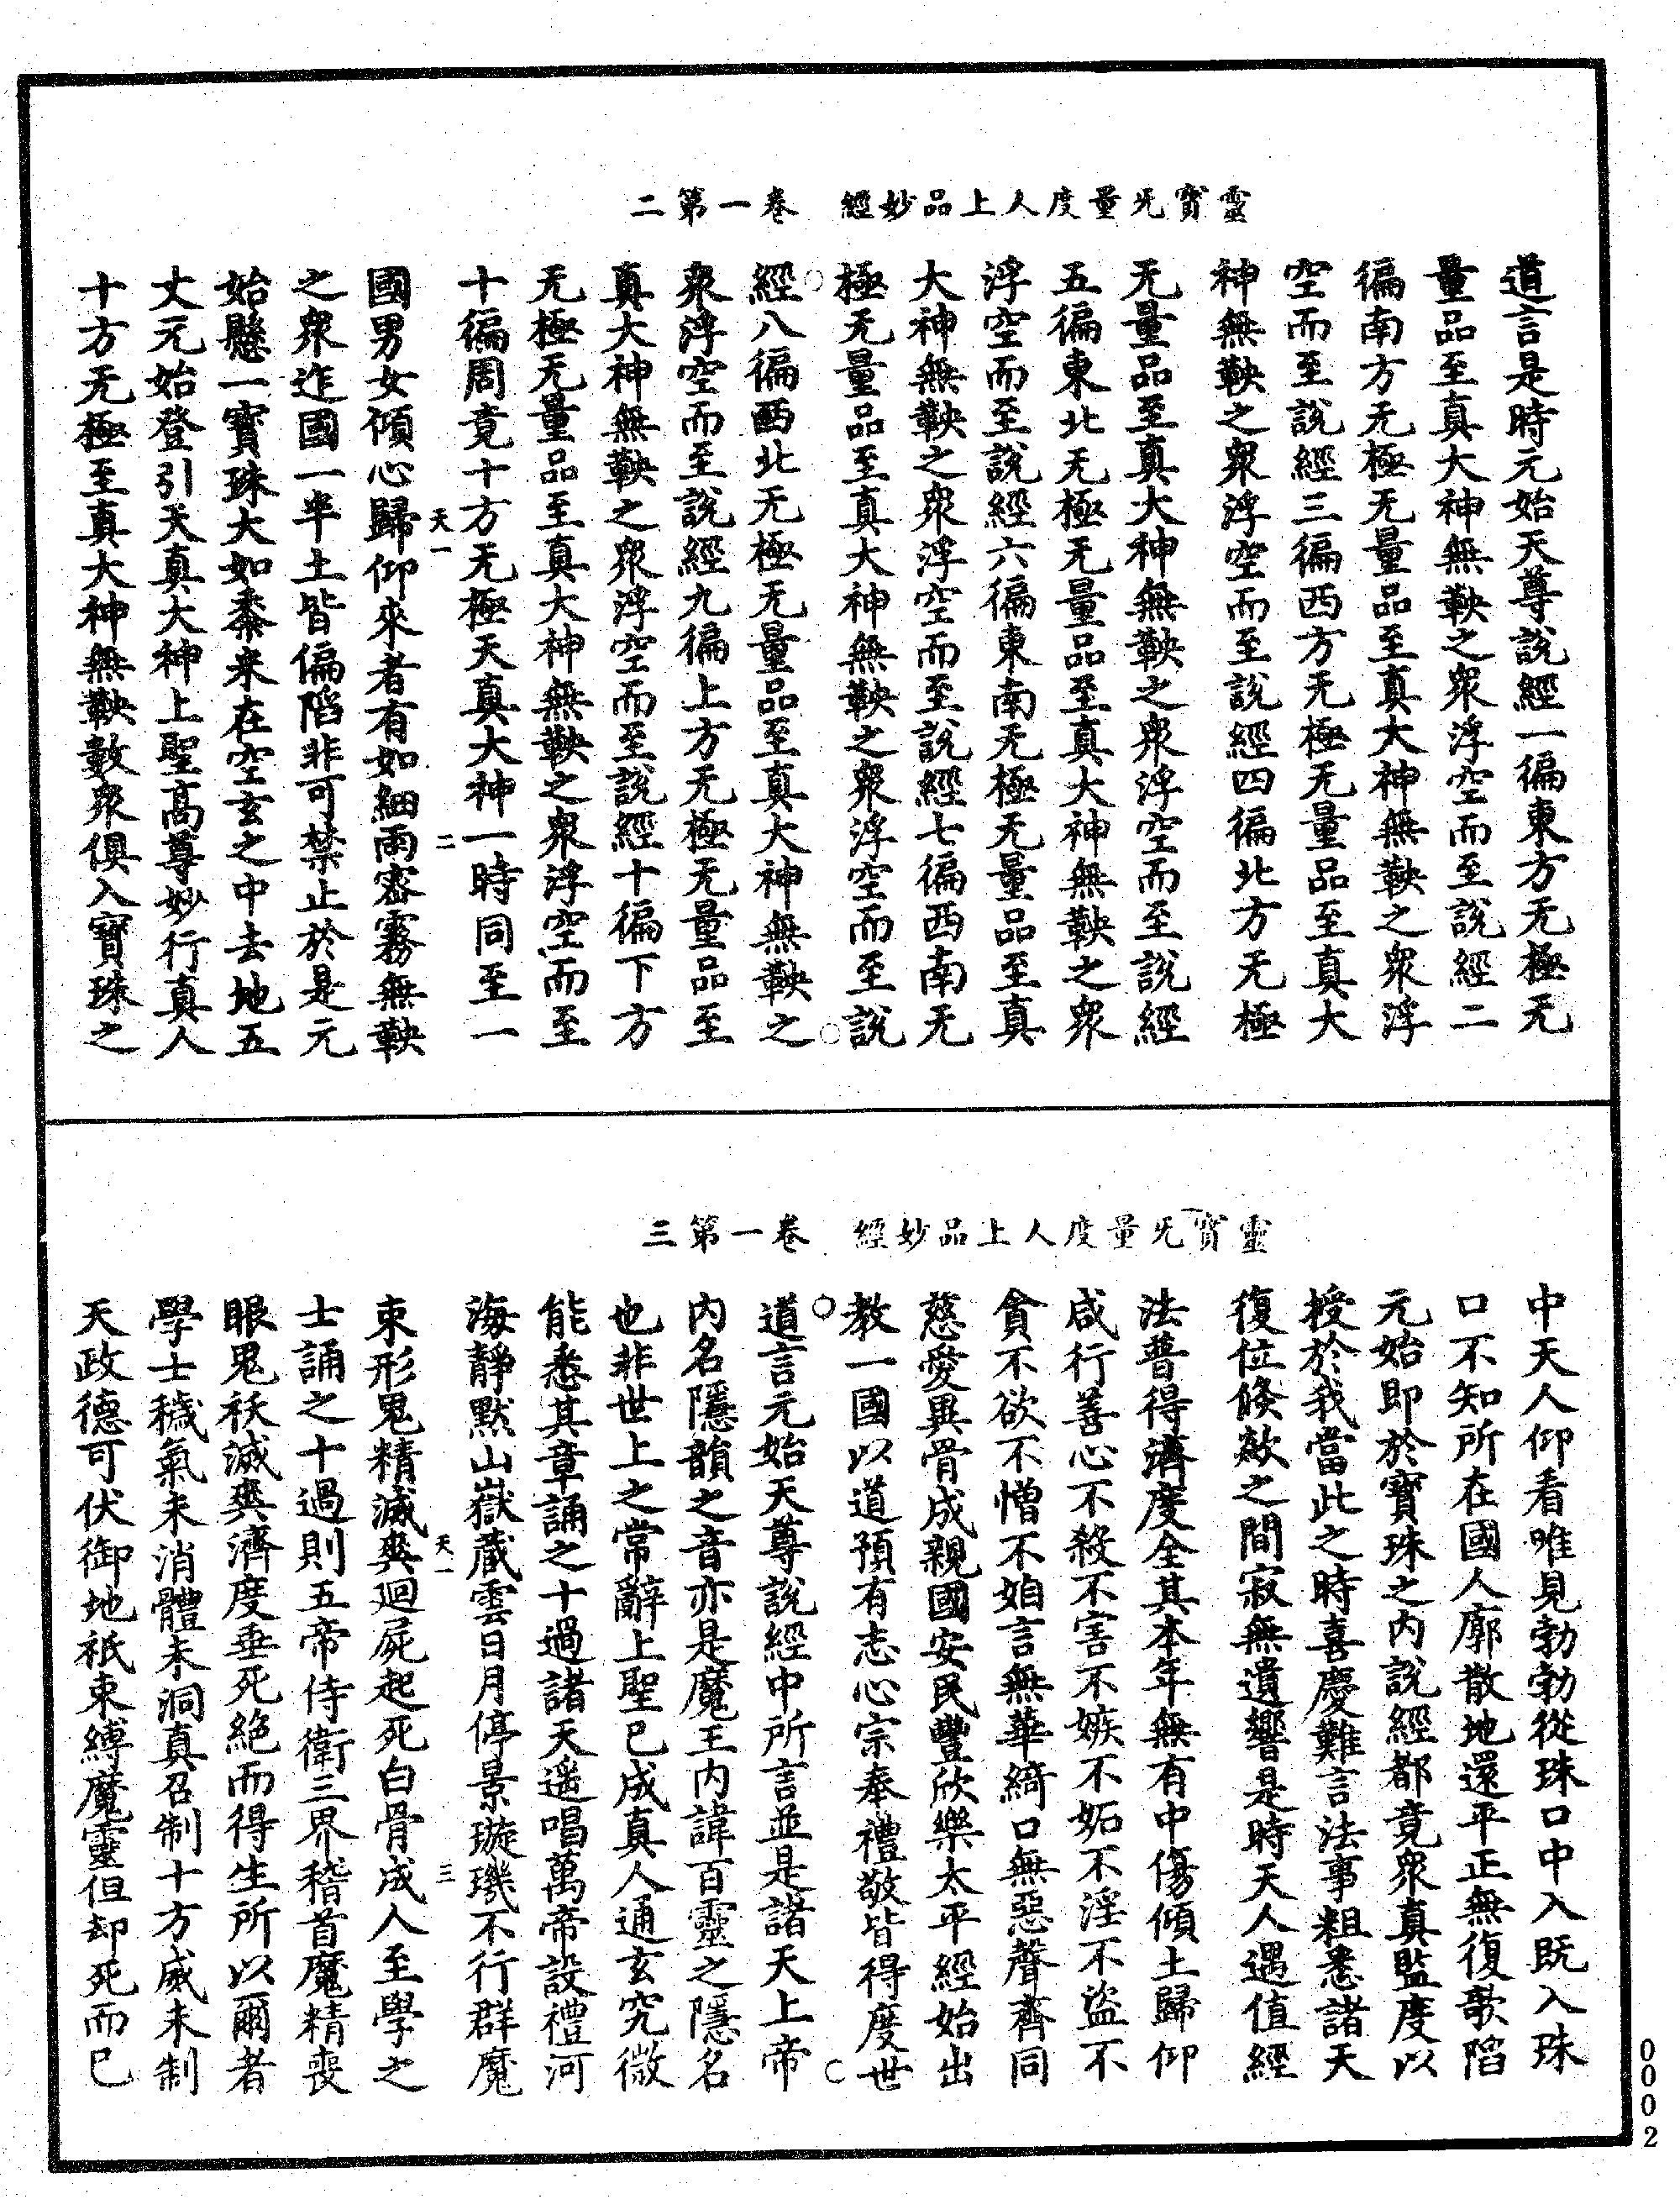 靈寶无量度人上品妙經　卷一第二
道言是時元始天尊說經一徧東方无極无
量品至真大神無鞅之衆浮空而至說經二
徧南方无極无量品至真大神無鞅之衆浮
空而至說經三徧西方无極无量品至真大
神無鞅之衆浮空而至說經四徧北方无極
无量品至真大神無鞅之衆浮空而至說經
五徧東北无極无量品至真大神無鞅之衆
浮空而至說經六徧東南无極无量品至真
大神無鞅之衆浮空而至說經七徧西南无
極无量品至真大神無鞅之衆浮空而至說
經八徧西北无極无量品至真大神無鞅之
衆浮空而至說經九徧上方无極无量品至
真大神無鞅之衆浮空而至說經十徧下方
无極无量品至真大神無鞅之衆浮空而至
十徧周竟十方无極天真大神一時同至一
天一　二
國男女傾心歸仰來者有如細雨密霧無鞅
之衆迮國一半土皆偏陷非可禁止於是元
始懸一寶珠大如黍米在空玄之中去地五
丈元始登引天真大神上聖高尊妙行真人
十方无極至真大神無鞅數衆俱入寶珠之
靈寶无量度人上品妙經　卷一第三
中天人仰看唯見勃勃從珠口中入既入珠
口不知所在國人廓散地還平正無復欹陷
元始即於寶珠之內說經都竟衆真監度以
授於我當此之時喜慶難言法事粗悉諸天
復位倏欻之間寂無遺響是時天人遇值經
法普得濟度全其本年無有中傷傾土歸仰
咸行善心不殺不害不嫉不妬不淫不盜不
貪不欲不憎不㛅言無華綺口無惡聲齊同
慈愛異骨成親國安民豐欣樂太平經始出
教一國以道預有志心宗奉禮敬皆得度世
道言元始天尊說經中所言並是諸天上帝
內名隱韻之音亦是魔王內諱百靈之隱名
也非世上之常辭上聖已成真人通玄究微
能悉其章誦之十過諸天遥唱萬帝設禮河
海靜默山嶽藏雲日月停景璇璣不行群魔
天一　三
束形鬼精滅爽廻屍起死白骨成人至學之
士誦之十過則五帝侍衛三界稽首魔精喪
眼鬼祅滅爽濟度垂死絕而得生所以爾者
學士穢氣未消體未洞真召制十方威未制
天政德可伏御地祇束縛魔靈但却死而已
0002